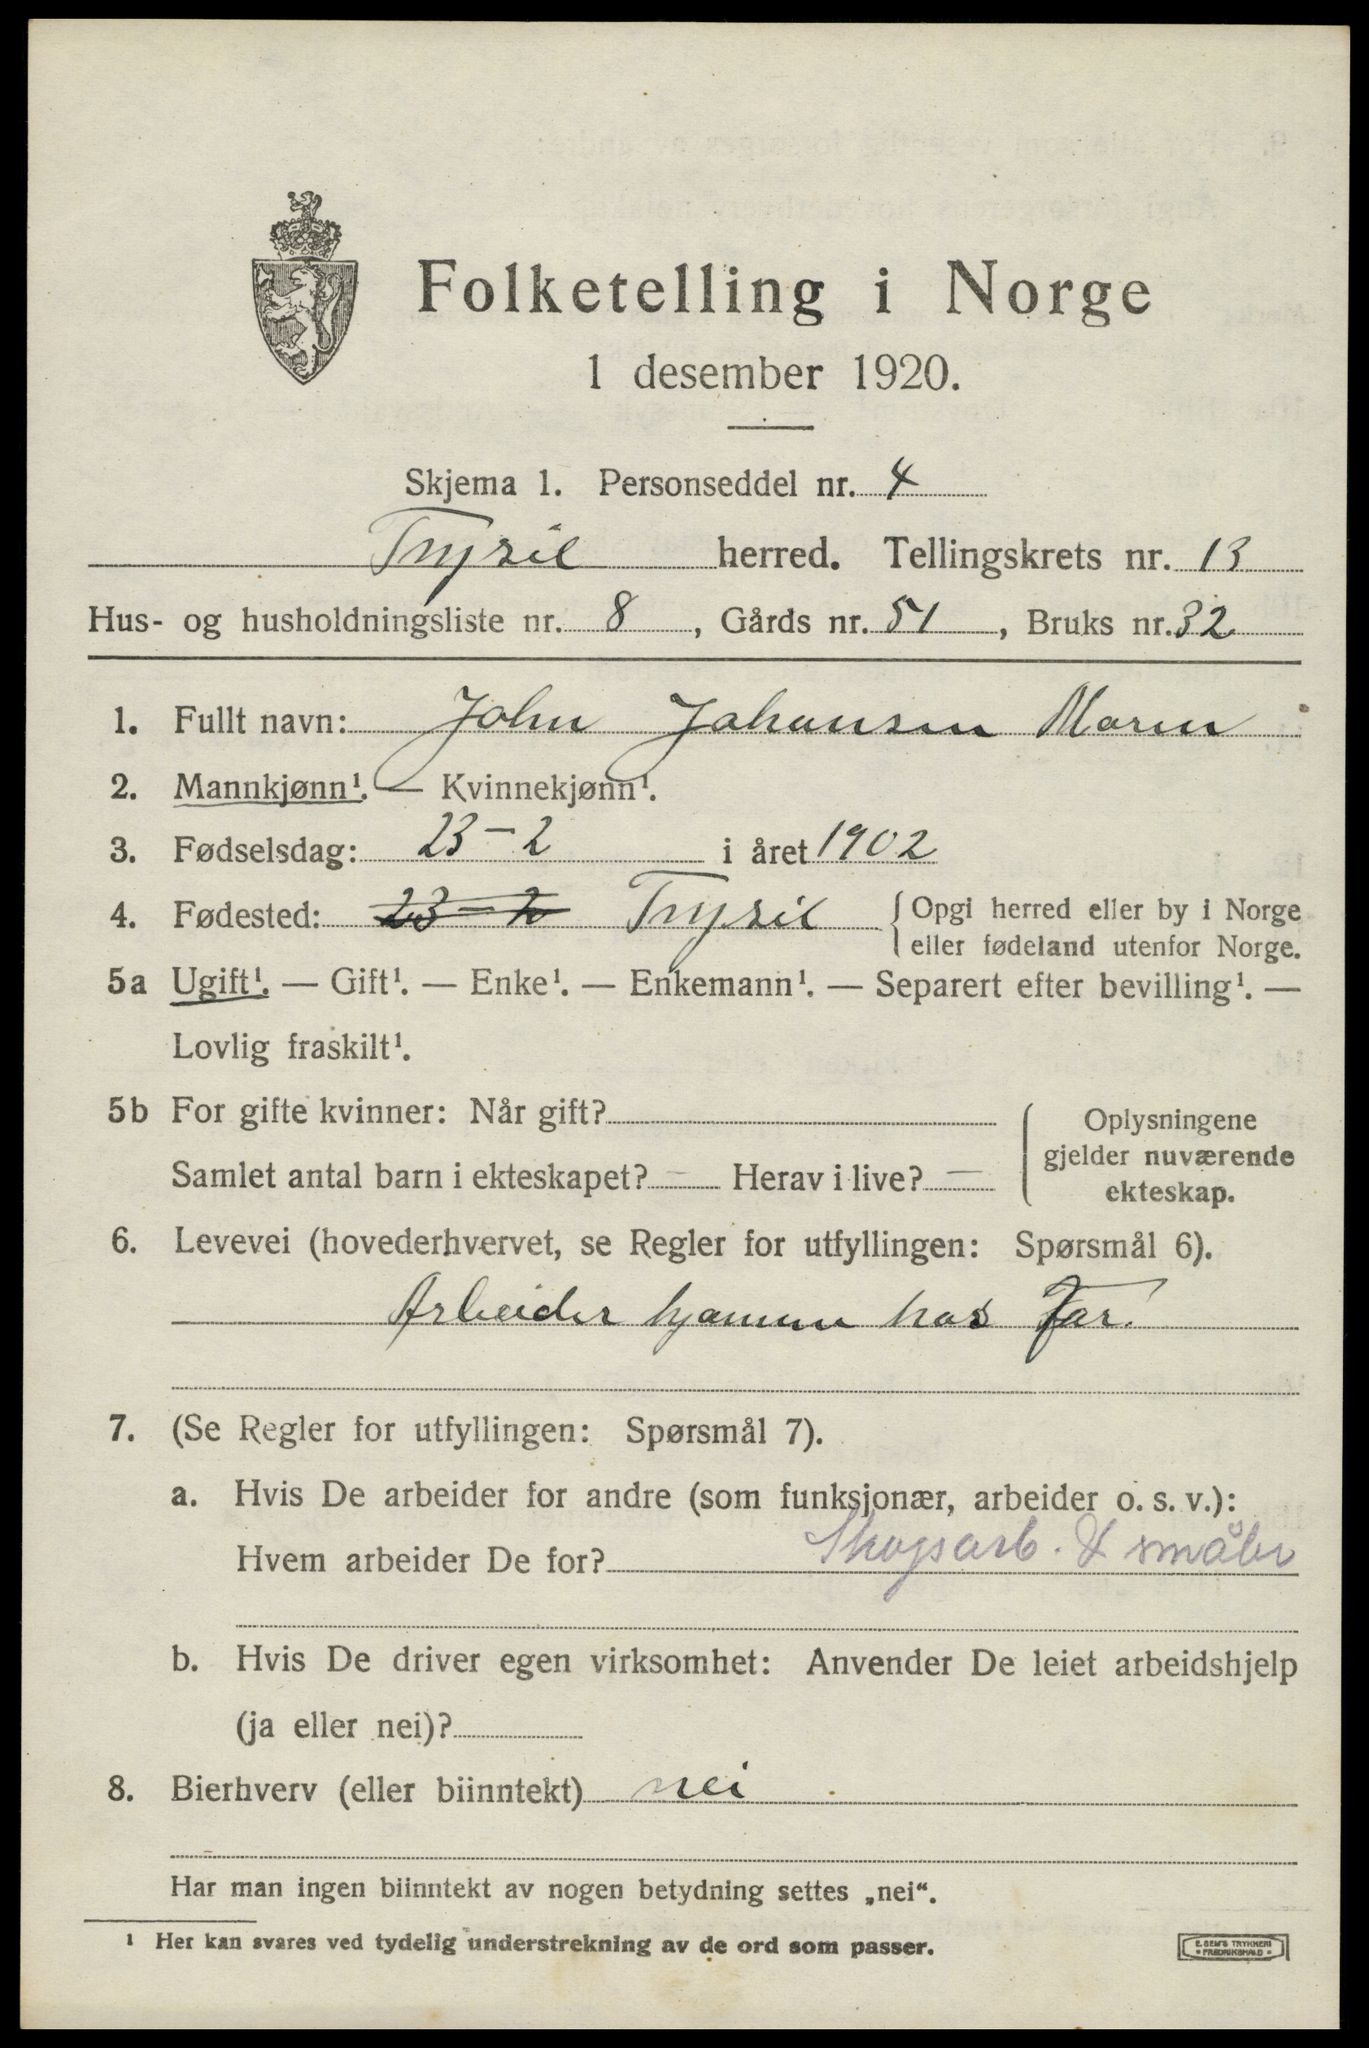 Folketelling i Norge
1 desember 1920.
Skjema 1. Personseddel nr. 4
Trysil herred. Tellingskrets nr. 13
Hus- og husholdningsliste nr. 8, Gårds nr. 51, Bruks nr. 32
1. Fullt navn: John Johansen Moren
2. Mannkjønn¹. — Kvinnekjønn¹.
3. Fødselsdag: 23-2 i året 1902
4. Fødested: 23-2 Trysil { Opgi herred eller by i Norge
eller fødeland utenfor Norge.
5a Ugift¹. — Gift¹. — Enke¹. — Enkemann¹. — Separert efter bevilling¹. —
Lovlig fraskilt¹.
5b For gifte kvinner: Når gift?
Samlet antal barn i ekteskapet? — Herav i live? —
Oplysningene
gjelder nuværende
ekteskap.
6. Levevei (hovederhvervet, se Regler for utfyllingen: Spørsmål 6).
Arbeider hjemme hos Far.
7. (Se Regler for utfyllingen: Spørsmål 7).
a. Hvis De arbeider for andre (som funksjonær, arbeider o. s. v.):
Hvem arbeider De for? Skogsarb. & småbr
b. Hvis De driver egen virksomhet: Anvender De leiet arbeidshjelp
(ja eller nei)?
8. Bierhverv (eller biinntekt) nei
Har man ingen biinntekt av nogen betydning settes „nei“.
¹ Her kan svares ved tydelig understrekning av de ord som passer.
E. SEM'S TRYKKERI
FREDRIKSHALD